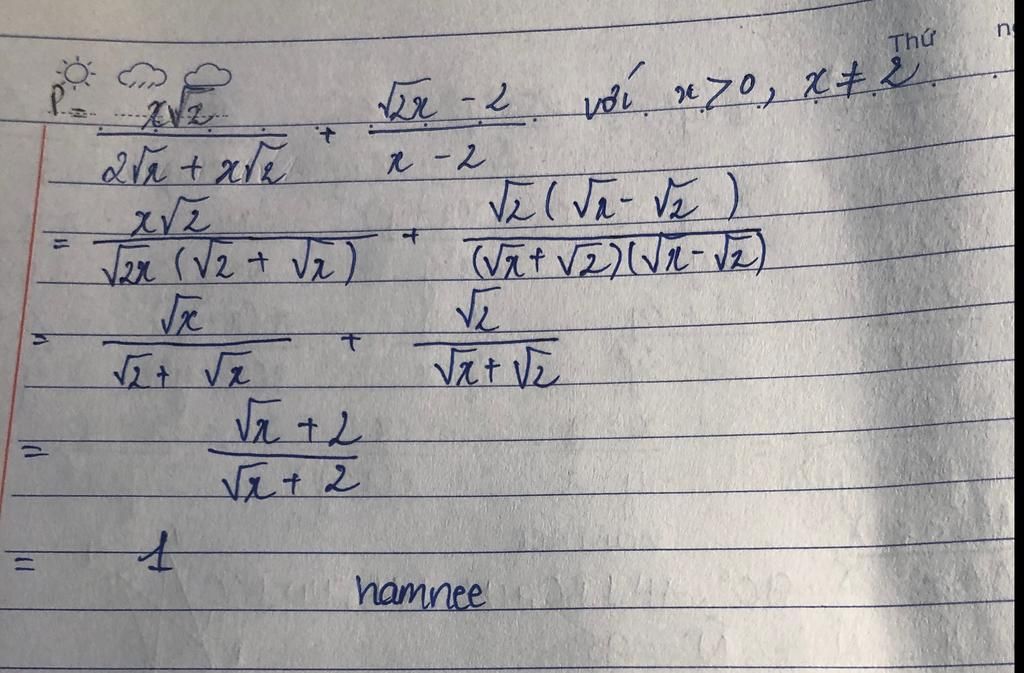 Thứ
P = x√2 / (2√x + x√2) + (√2x - 2) / (x - 2) với x > 0, x ≠ 2
= x√2 / (√2x (√2 + √x)) + √2 (√x - √2) / ((√x + √2)(√x - √2))
= √x / (√2 + √x) + √2 / (√x + √2)
= (√x + 2) / (√x + 2)
= 1
hamnee